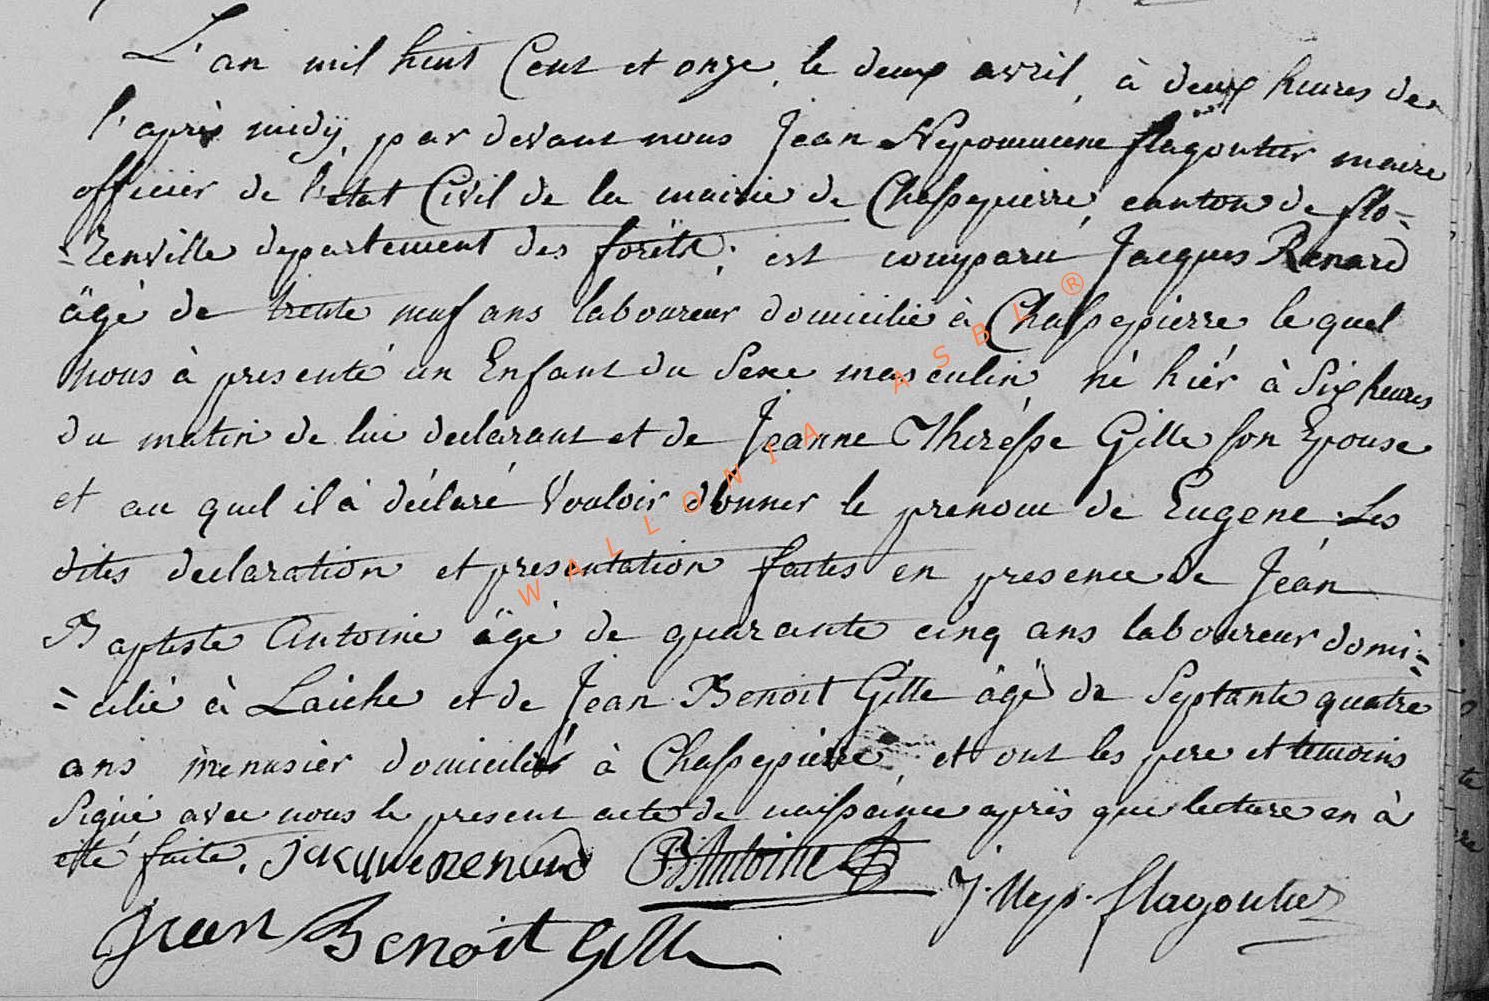 L'an mil huit Cent et onze, le deux avril, à deux heures de
l'après midÿ, par devant nous Jean Nepomucene flagontier maire
officier de l'état Civil de la mairie de Chassepierre, canton de flo=
=renville departement des forêts; est comparu Jacques Renard
âgé de trente neuf ans laboureur domicilié à Chassepierre le quel
nous à presenté un Enfant du Sexe masculin né hiér à Six heures
du matin de lui declarant et de Jeanne Thérésse Gille son Epouse
et au quel il à déclaré Vouloir donner le prenom de Eugene. Les
dites declaration et presentation faites en presence de Jean
Baptiste Antoine âgé de quarante cinq ans laboureur domi=
=cilié à Laiche et de Jean Benoit Gille âgé de Septante quatre
ans menusier domicilié à Chassepierre, et ont les pere et témoins
Signé avec nous le present acte de naissance après que lecture en à
eté faite. jacque renard JB Antoine J. Nep. flagontier
Jean Benoit Gille
WALLONIA ASBL ®